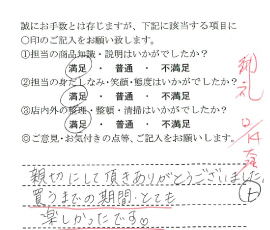 誠にお手数とは存じますが、下記に該当する項目に
〇印のご記入をお願い致します。
①担当の商品知識・説明はいかがでしたか?
満足 ・ 普通 ・ 不満足
②担当の身だしなみ・笑顔・態度はいかがでしたか?
満足 ・ 普通 ・ 不満足
③店内外の整理・整頓・清掃はいかがでしたか?
満足 ・ 普通 ・ 不満足
◎ご意見・お気付きの点等、ご記入をお願いします。
親切にして頂きありがとうございました。
買うまでの期間、とても
楽しかったです。
上